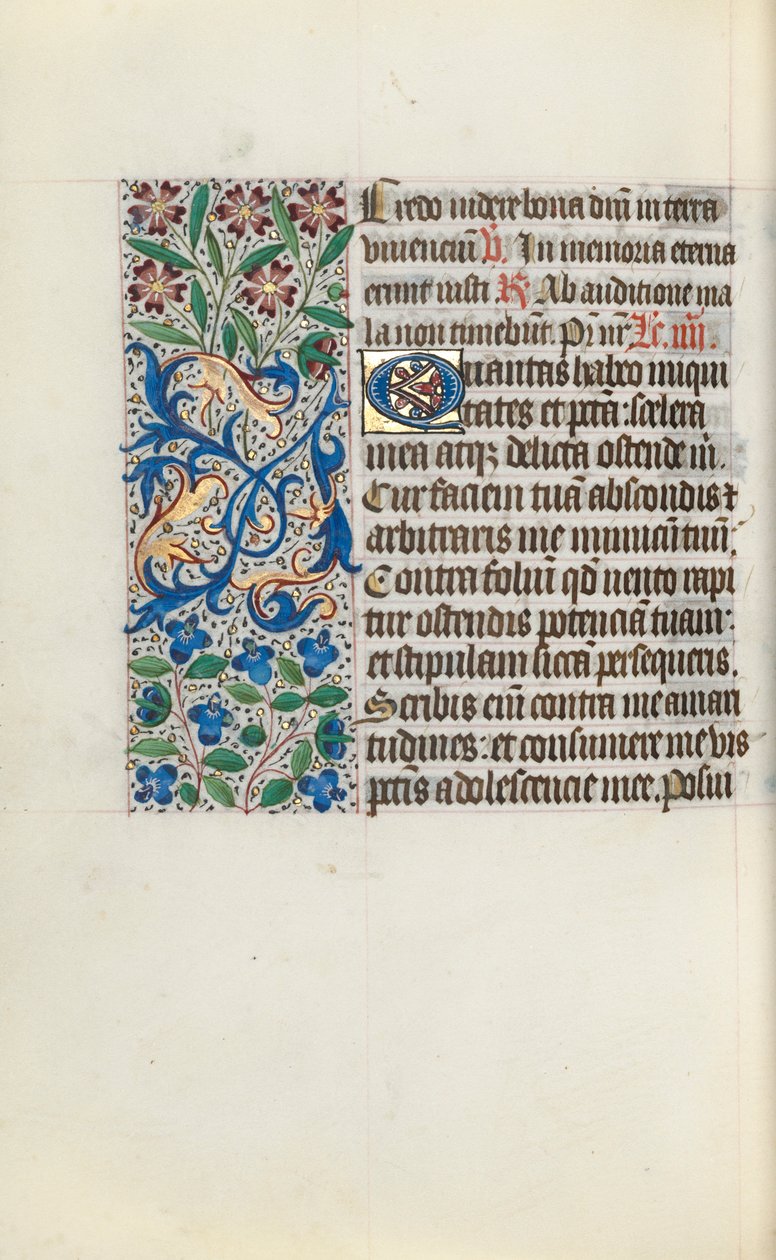 Credo videre bona dñi in terra
viuenciũ V̸. In memoria eterna
erunt iusti R̸. Ab auditione ma
la non timebũt. Pr̃ nr̃ Lc̃. iiij.
Quantas habeo iniqui
tates et pctã: scelera
mea atqꝫ delicta ostende m̃.
Cur faciem tuã abscondis ⁊
arbitraris me inimicũ tuũ:
Contra foliũ qd̃ uento rapi
tur ostendis potenciã tuam:
et stipulam siccã persequeris.
Scribis eiñ contra me amari
tudines: et consumere me vis
pctĩs adolescencie mee. Posui